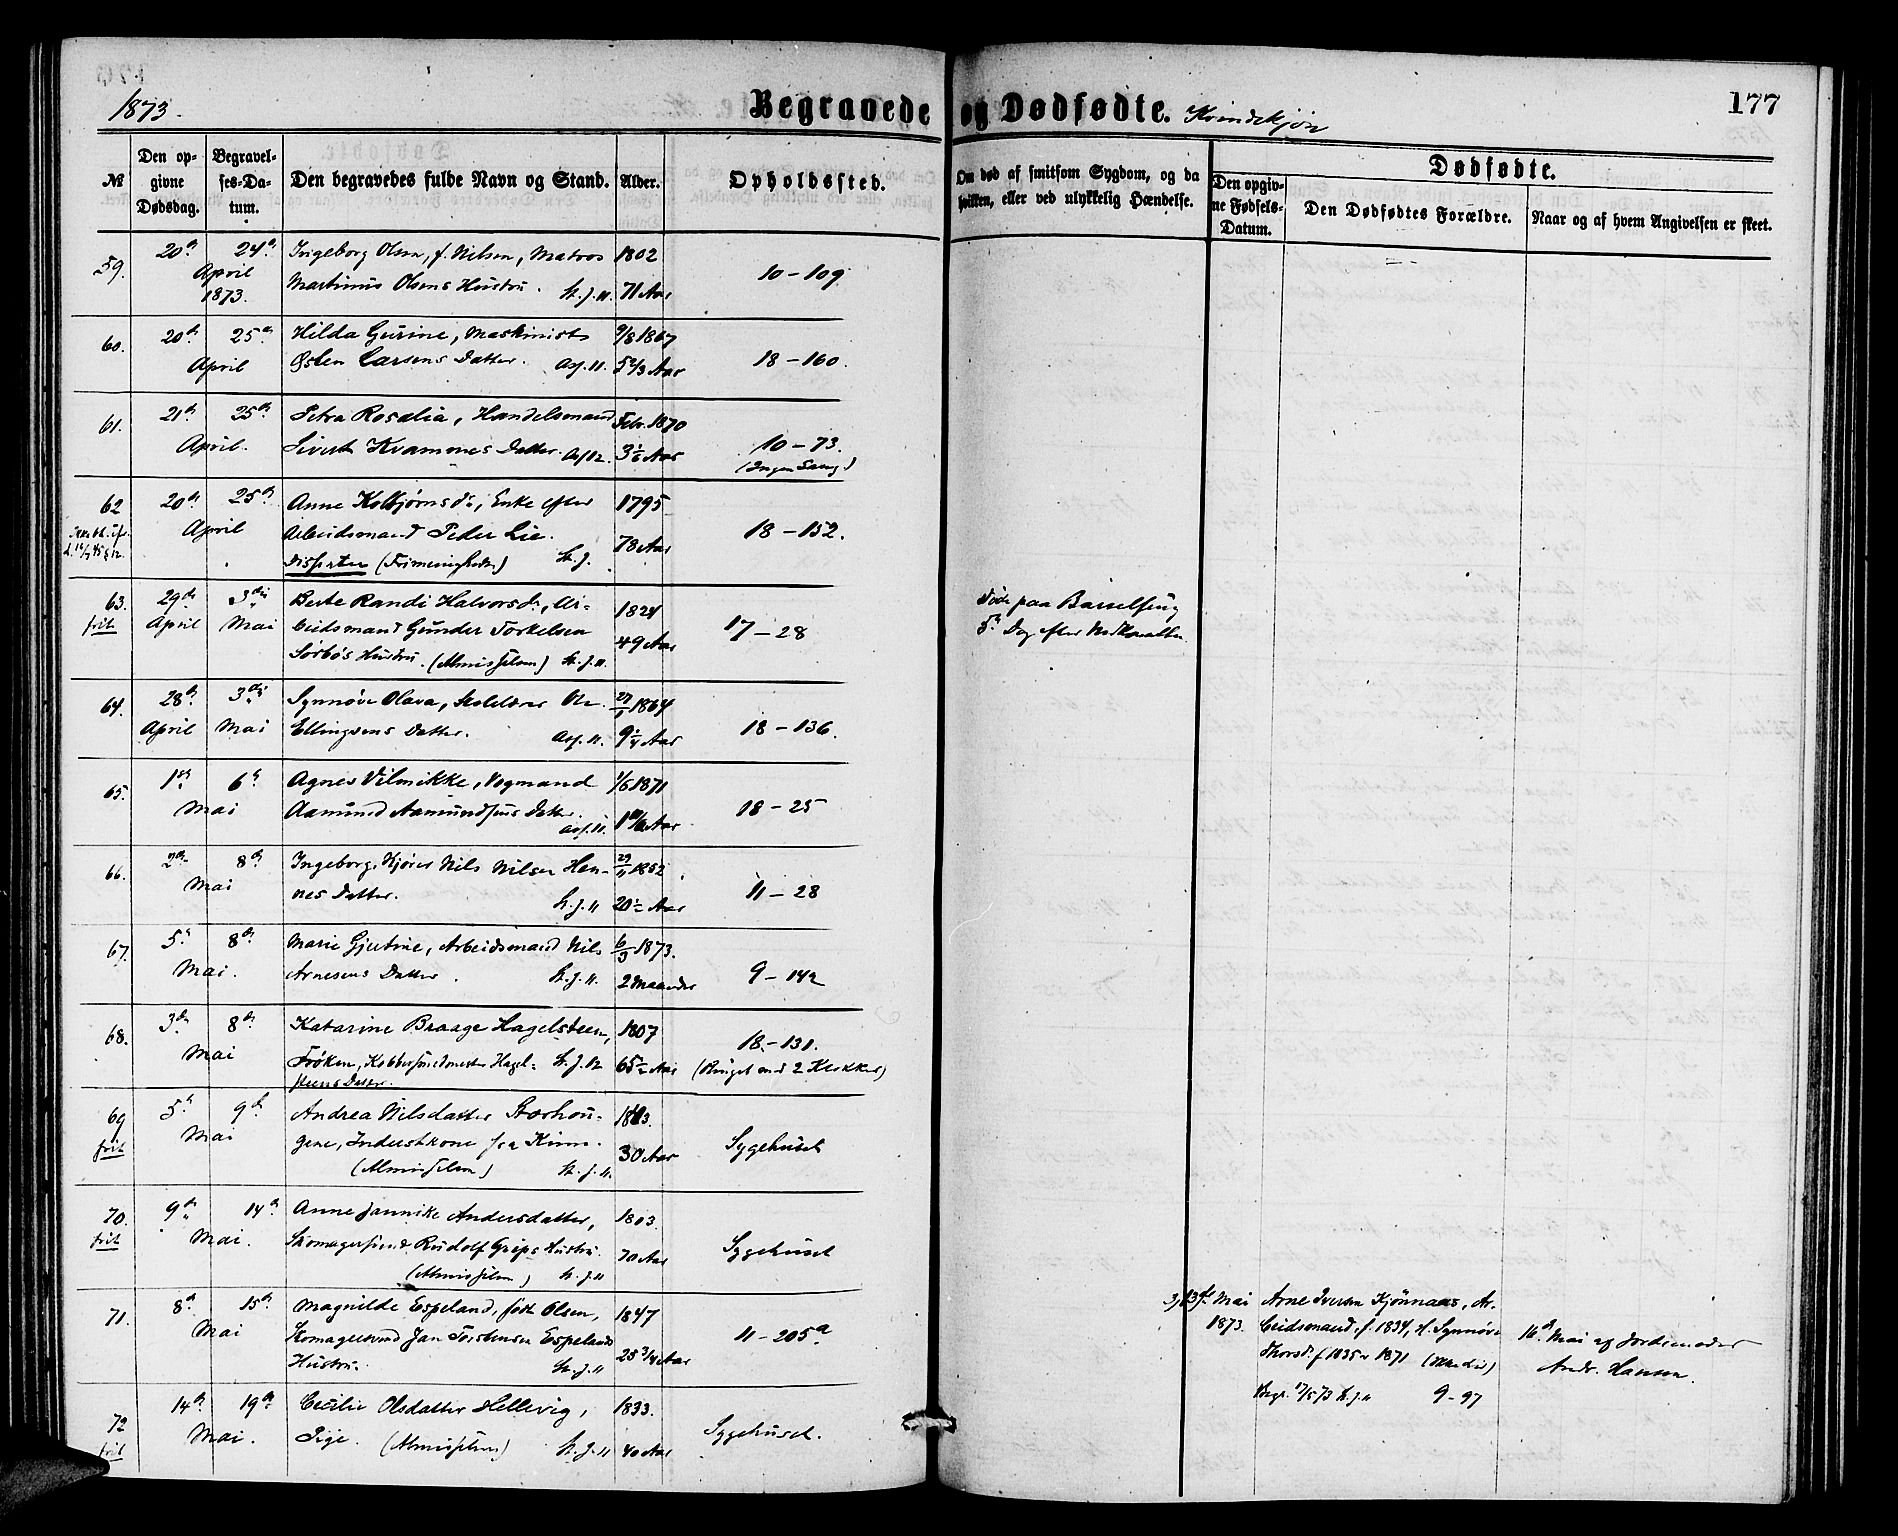 1873.
Begravede og Dødfødte. Kvindekjøn
177
№
Den op-
givne
Dødsdag.
Begravel-
ses-Da-
tum.
Den begravedes fulde Navn og Stand.
Alder.
Opholdssted.
Om død af smitsom Sygdom, og da
hvilken, eller ved ulykkelig Hændelse.
Dødfødte.
Den opgiv-
ne Fødsels-
Datum.
Den Dødfødtes Forældre.
Naar og af hvem Angivelsen er skeet.
59. 20de 24de Ingeborg Olsen, f. Nilsen, Matros 1802
April
1873.
Martinus Olsens Hustru. St. J. 11. 71 Aar
10 - 109.
60. 20de 25de Hilda Gurine, Maskinist 9/8 1867
April Østen Larsens Datter. Asf. 11. 5 2/3 Aar
18 - 160.
61. 21de 25de Petra Rosalia, Handelsmand Febr. 1870
April. Sivert Kvamnes Datter. Asf 12. Aar
10 - 73.
(Ingen Sang)
62 20de 25de Anne Kolbjørnsd., Enke efter 1795
April Arbeidsmand Peder Lie. 78 Aar
Dissenter St. J.
18 - 152.
63. 29de 3die Berte Randi Halvorsd., Ar- 1824
frit April Mai beidsmand Gunder Torkelsen 49 Aar
Sørbøs Hustru. (Almisselem) St. J. 11.
17 - 28
Døde paa Barselseng
5te Dag efter Nedkomsten
64. 28de 3die Synnøve Olava, Skolelærer Ole 1864
April Mai Ellingsens Datter. Asf. 11. 9 1/4 Aar
18 - 136.
65. 1ste 6te Agnes Vilmikke, Vogmand 1/6 1871
Mai Aamund Aamundsens Datter. Asf. 11. Aar
18 - 25
66. 2den 8de Ingeborg, Kjører Nils Nilsen Han- 1852
Mai nes Datter. St. J. 11 20 1/2 Aar
11 - 28
67. 5te 8de Marie Gjertine, Arbeidsmand Nils 6/3 1873.
Mai. Arnesens Datter. St. J. 11. 2 Maaneder
9 - 142
68. 3die 8de Katarine Braage Hagelsteen, 1807
Mai Frøken, Kobbersmedmester Hagel- St. J. 12 65 1/2 Aar
steens Datter.
18 - 131.
(Ringet med 2 Klokker)
69 5te 9de Andrea Nilsdatter Storhou-
frit Mai gene, Inderstkone fra Kinn. 30 Aar
(Almisselem) St. J. 11.
Sygehuset
70. 9de 14de Anne Jannike Andersdatter, 1803
frit Mai. Skomagersvend Rudolf Grips Hustru. 70 Aar
(Almisselem) St. J. 11
Sygehuset
71. 8de 15de Magnilde Espeland, født Olsen, 1847
Mai Skomagersvend Jan Torstensen Espelands
Hustru. St. J. 11 25 3/4 Aar
11 - 205a
3, 13de Mai
1873.
Arne Iversen Kjønnaas, Ar-
beidsmand f. 1834, H. Synnøve
Thorsd. f 1835 v 1871
Begr. 17/5 73 St. J. 11 9 - 97
16de Mai af Jordemoder
Andr. Hansen.
72 14de 19de Cecilie Olsdatter Hellevig, 1833.
frit Mai. Pige. (Almisselem) St. J. 11 40 Aar
Sygehuset.